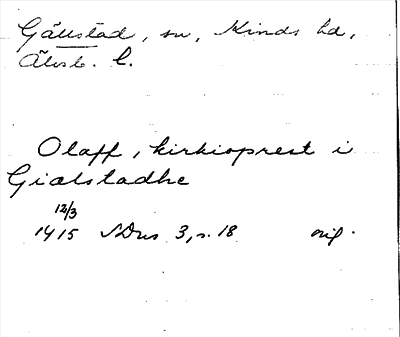 Gällstad, sn, Kinds hd,
Älvsb. l.
Olaff, kirkioprest i
Gialstadhe
12/3
1415 SDns 3, s. 18 orig.